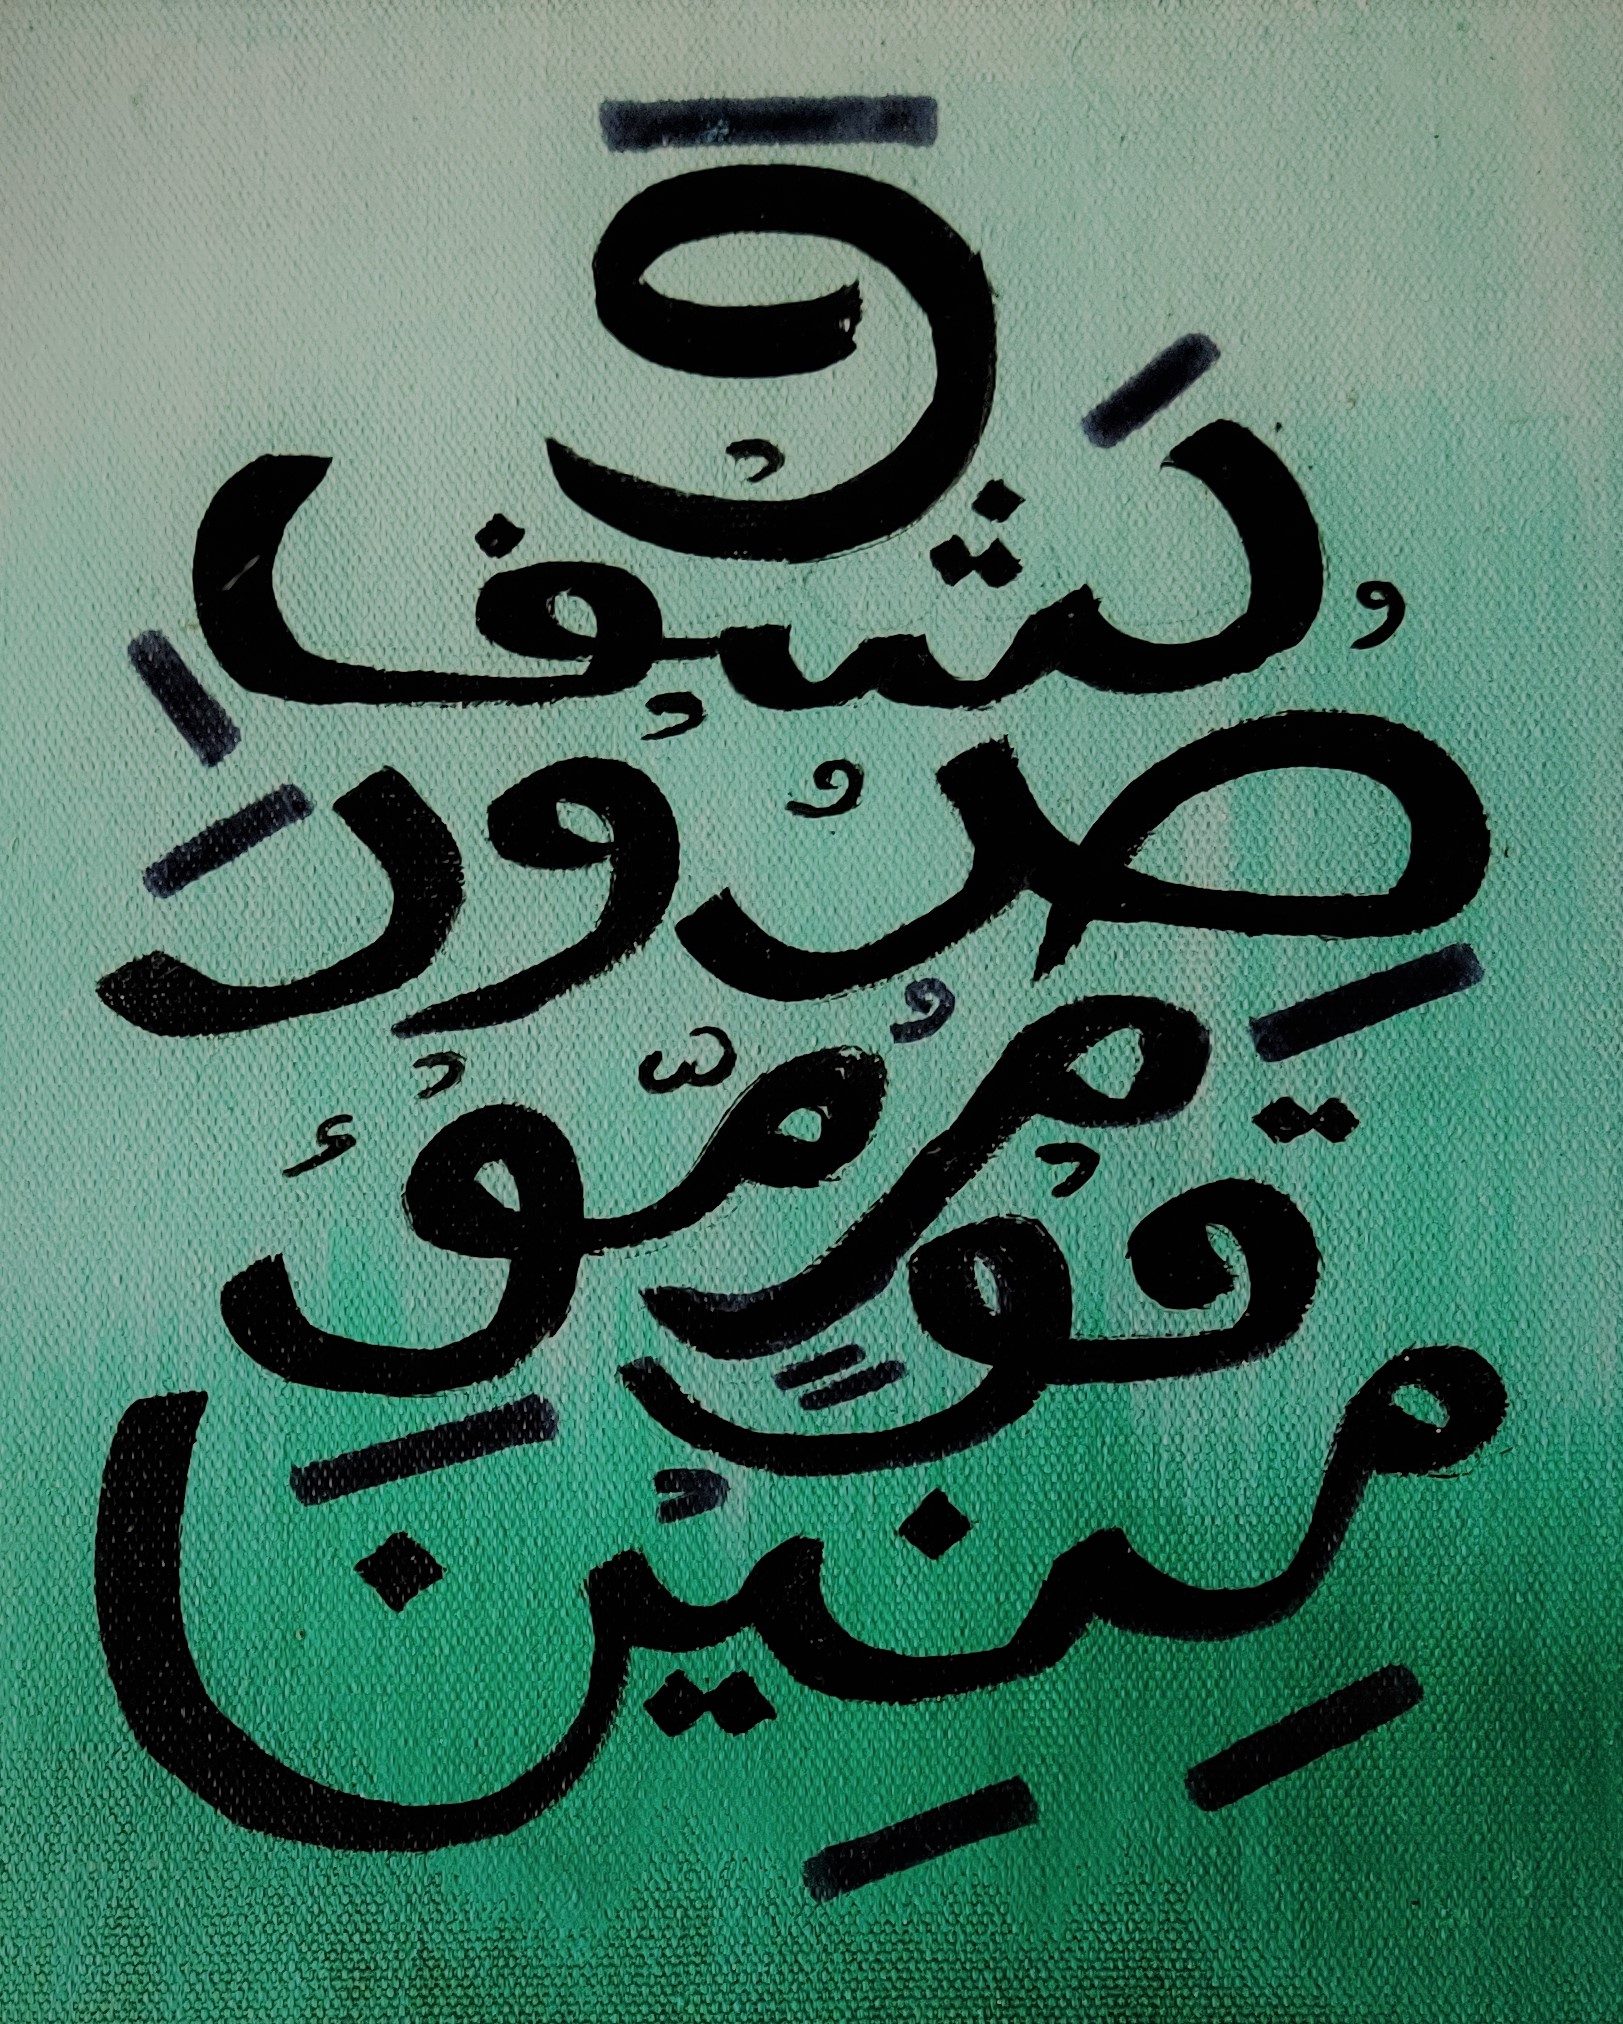 وَ
يَشْفِ
صُدُورَ
قَوْمٍ مُّؤْ
مِنِينَ